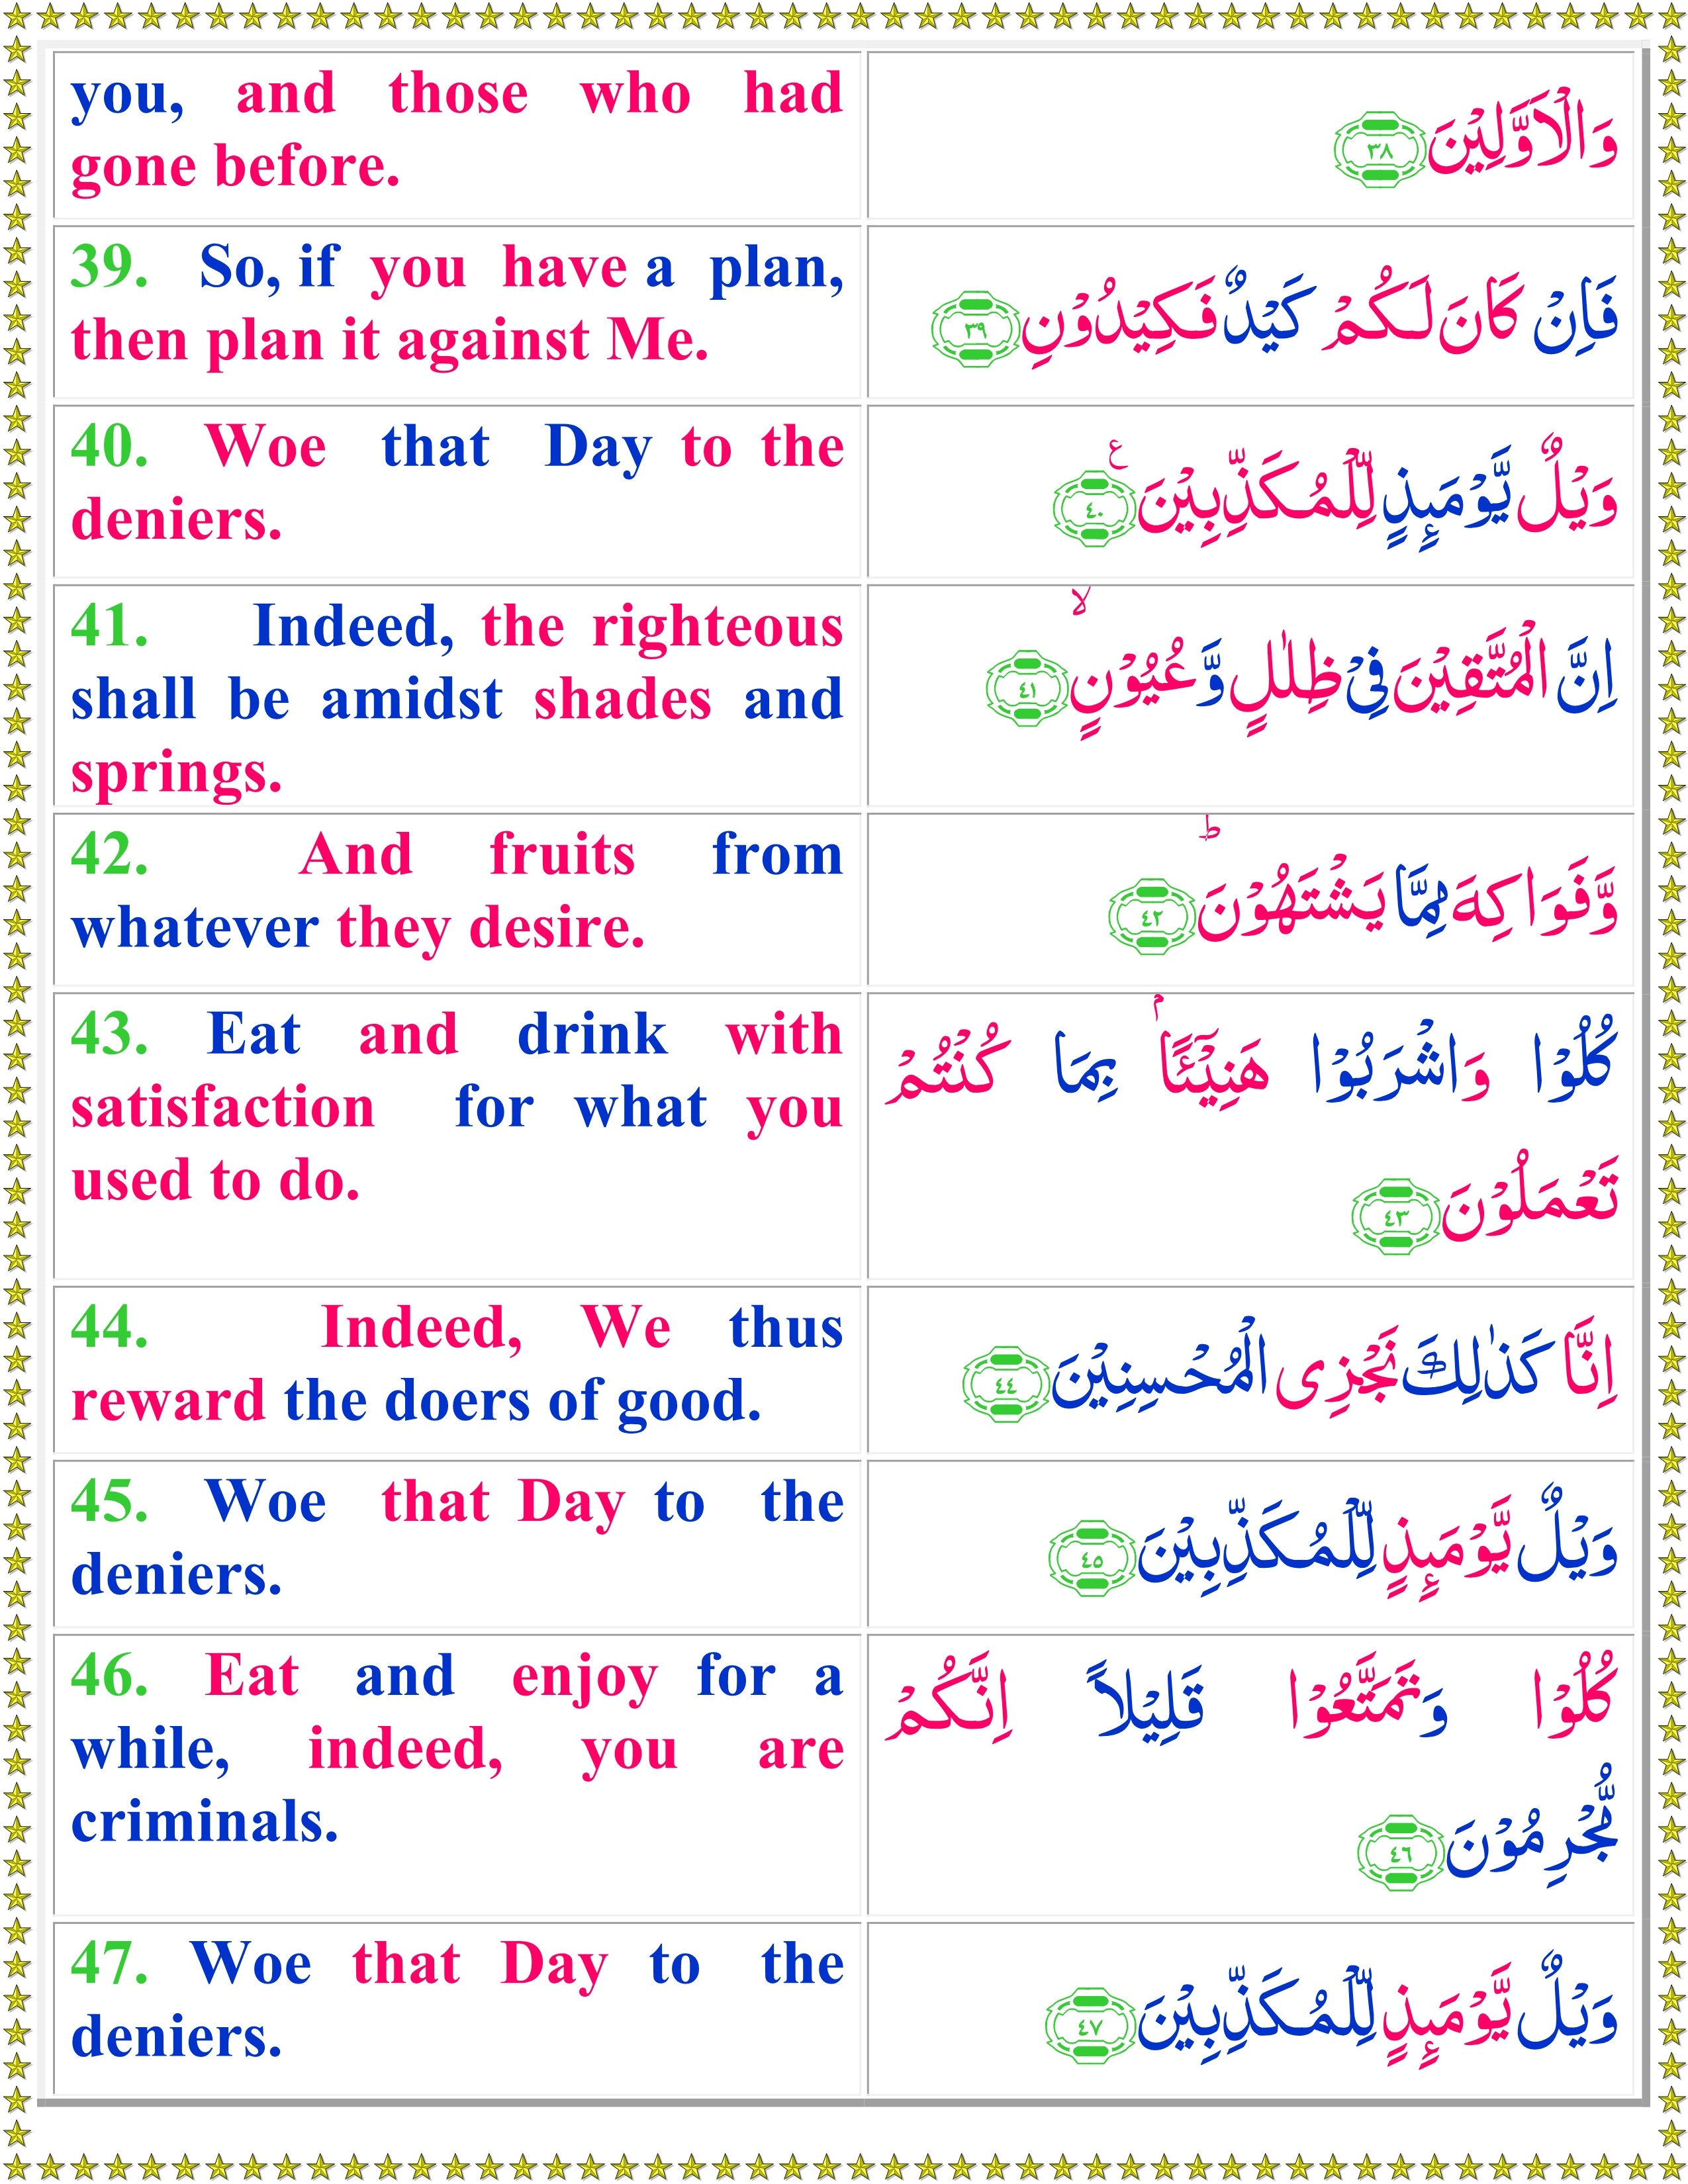 you, and those who had
gone before.
وَالۡاَوَّلِيۡنَ ﴿٣٨﴾
39. So, if you have a plan,
then plan it against Me.
فَاِنۡ كَانَ لَـكُمۡ كَيۡدٌ فَكِيۡدُوۡنِ ﴿٣٩﴾
40. Woe that Day to the
deniers.
وَيۡلٌ يَّوۡمَٮِٕذٍ لِّلۡمُكَذِّبِيۡنَ ﴿٤٠﴾ ع
41. Indeed, the righteous
shall be amidst shades and
springs.
اِنَّ الۡمُتَّقِيۡنَ فِىۡ ظِلٰلٍ وَّعُيُوۡنٍ ۙ‏ ﴿٤١﴾
42. And fruits from
whatever they desire.
وَّفَوَاكِهَ مِمَّا يَشۡتَهُوۡنَ ؕ ﴿٤٢﴾
43. Eat and drink with
satisfaction for what you
used to do.
كُلُوۡا وَاشۡرَبُوۡا هَنِيۡٓـئًا ۢ بِمَا كُنۡتُمۡ
تَعۡمَلُوۡنَ ﴿٤٣﴾
44. Indeed, We thus
reward the doers of good.
اِنَّا كَذٰلِكَ نَجۡزِى الۡمُحۡسِنِيۡنَ ﴿٤٤﴾
45. Woe that Day to the
deniers.
وَيۡلٌ يَّوۡمَٮِٕذٍ لِّلۡمُكَذِّبِيۡنَ ﴿٤٥﴾
46. Eat and enjoy for a
while, indeed, you are
criminals.
كُلُوۡا وَتَمَتَّعُوۡا قَلِيۡلاً اِنَّكُمۡ
مُّجۡرِمُوۡنَ ﴿٤٦﴾
47. Woe that Day to the
deniers.
وَيۡلٌ يَّوۡمَٮِٕذٍ لِّلۡمُكَذِّبِيۡنَ ﴿٤٧﴾